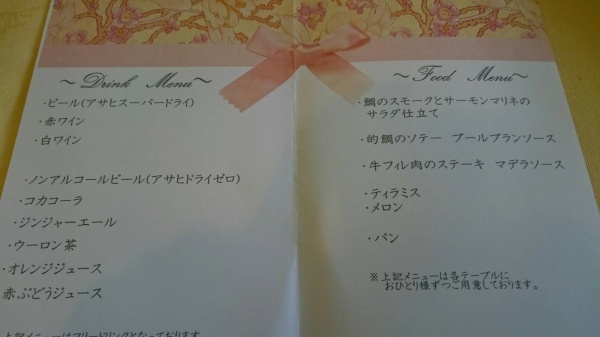 ～Drink Menu～
・ビール(アサヒスーパードライ)
・赤ワイン
・白ワイン
・ノンアルコールビール(アサヒドライゼロ)
・コカコーラ
・ジンジャーエール
・ウーロン茶
・オレンジジュース
赤ぶどうジュース
上記メニューはフリードリンクとなっております。
～Food Menu～
・鯛のスモークとサーモンマリネの
サラダ仕立て
・的鯛のソテー ブールブランソース
・牛フィレ肉のステーキ マデラソース
・ティラミス
・メロン
・パン
※上記メニューは各テーブルに
おひとり様ずつご用意しております。